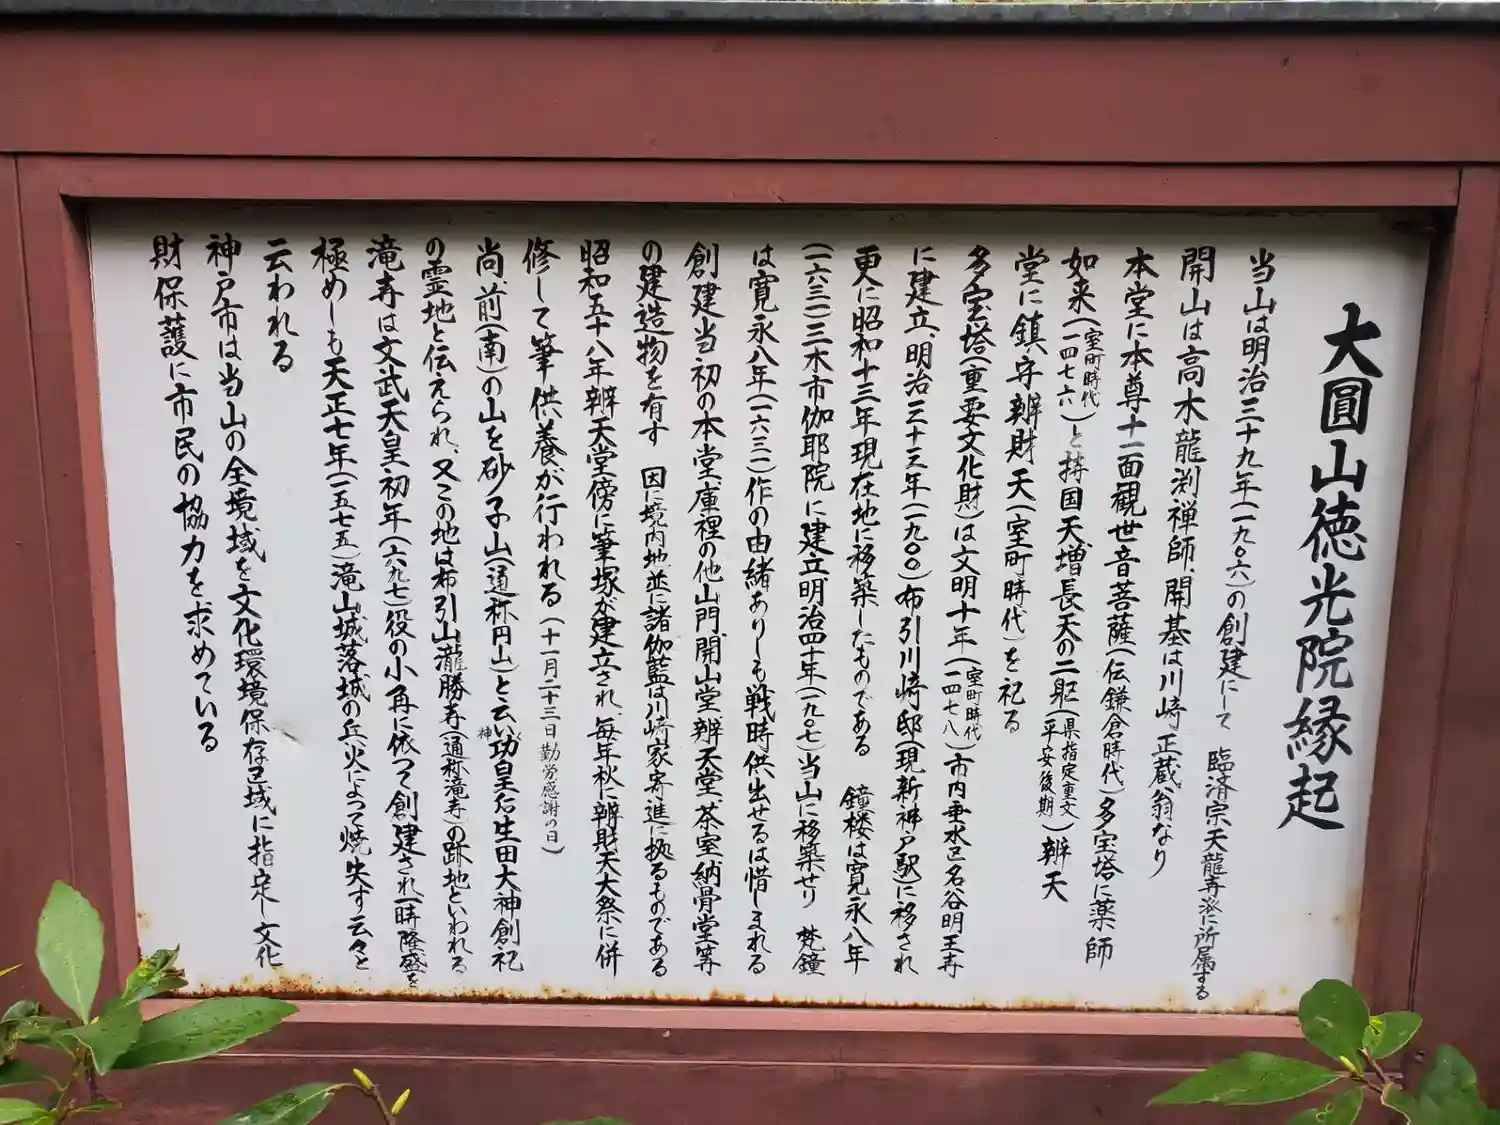 大圓山徳光院縁起
当山は明治三十九年(一九〇六)の創建にして 臨済宗天龍寺派に所属する
開山は高木龍渕禅師、開基は川崎正蔵翁なり
本堂に本尊十一面観世音菩薩(伝鎌倉時代)多宝塔に薬師
如来(室町時代一四七六)と持国天増長天の二躯(県指定重文平安後期)辨天
堂に鎮守辨財天(室町時代)を祀る
多宝塔(重要文化財)は文明十年(室町時代一四七八)市内垂水区名谷明王寺
に建立、明治三十三年(一九〇〇)布引川崎邸(現新神戸駅)に移され
更に昭和十三年現在地に移築したものである 鐘楼は寛永八年
(一六三一)三木市伽耶院に建立明治四十年(一九〇七)当山に移築せり 梵鐘
は寛永八年(一六三一)作の由緒ありしも戦時供出せるは惜しまれる
創建当初の本堂、庫裡の他山門、開山堂、辨天堂、茶室、納骨堂等
の建造物を有す 因に境内地並に諸伽藍は川崎家寄進に拠るものである
昭和五十八年辨天堂傍に筆塚が建立され、毎年秋に辨財天大祭に併
修して筆供養が行われる(十一月二十三日勤労感謝の日)
尚、前(南)の山を砂子山(通称円山)と云い神功皇后生田大神創祀
の霊地と伝えられ、又この地は布引山瀧勝寺(通称滝寺)の跡地といわれる
滝寺は文武天皇初年(六九七)役の小角に依って創建され一時隆盛を
極めしも天正七年(一五七五)滝山城落城の兵火によって焼失す云々と
云われる
神戸市は当山の全境域を文化環境保存区域に指定し文化
財保護に市民の協力を求めている